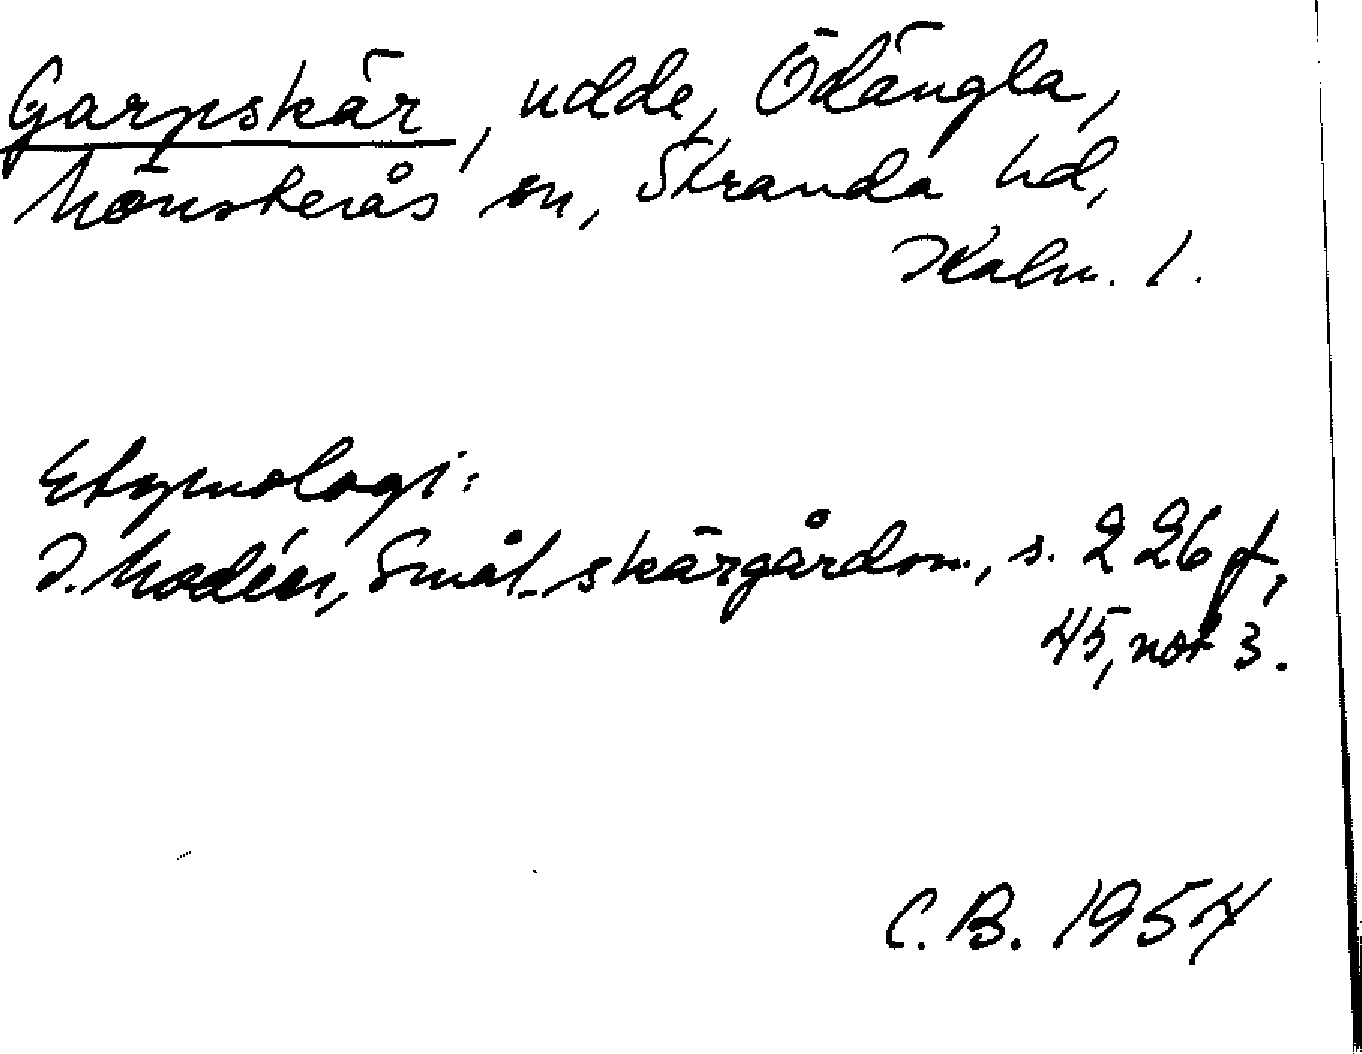 Garpskär, udde, Ödängla,
Mönsterås sn, Stranda hd,
Kalm. l.
Etymologi:
I. Modéer, Smål. skärgårdsn., s. 226 f,
45, not 3.
C.B. 1954